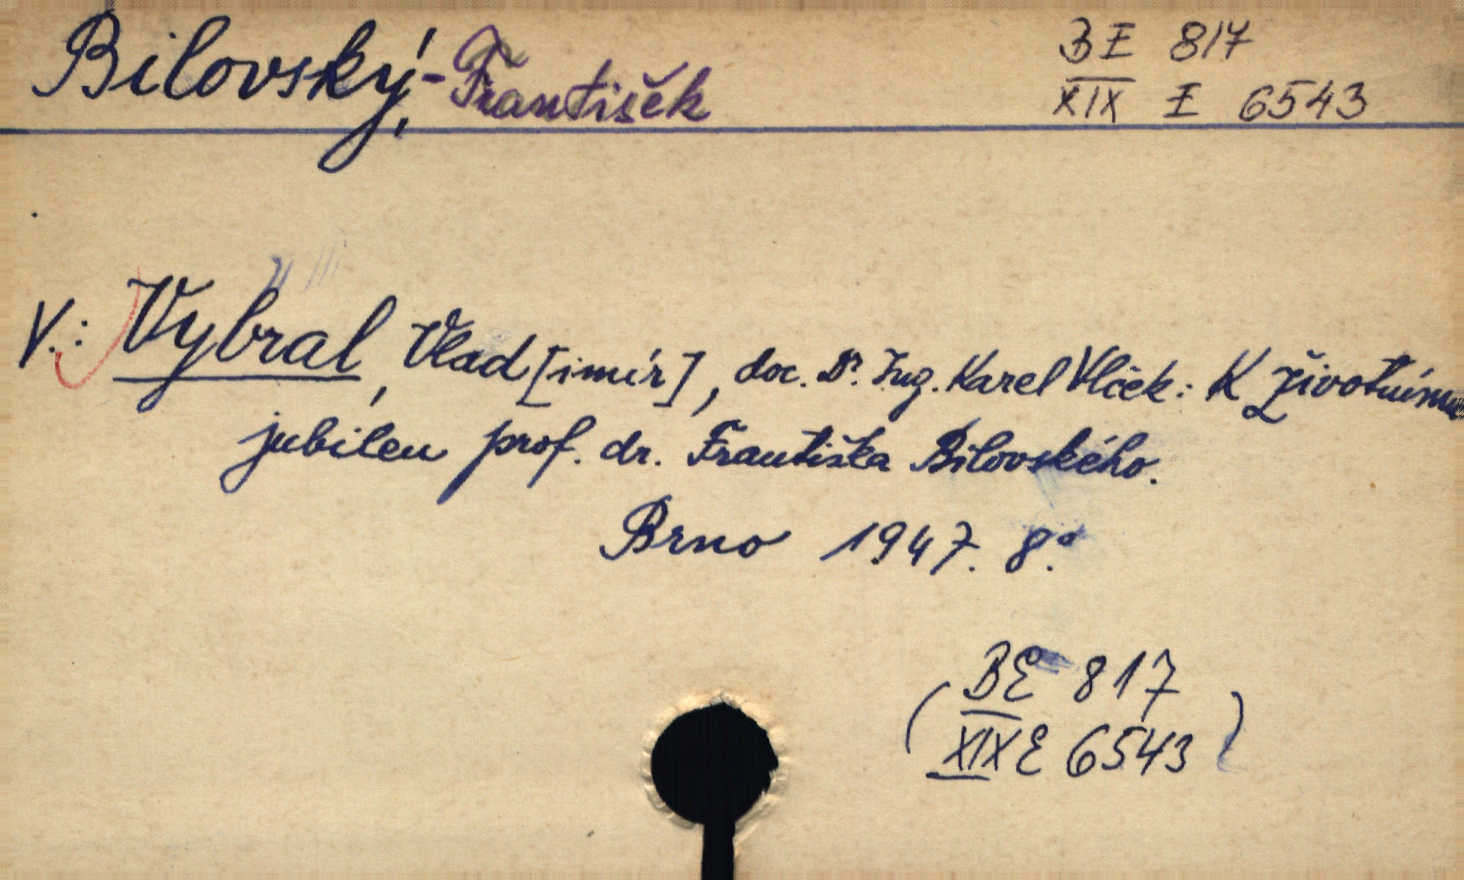 Bilovský, František
BE 817
XIX E 6543
V.: Vybral, Vlad[imír], doc. Dr. Ing. Karel Vlček: K životnímu
jubileu prof. dr. Františka Bilovského.
Brno 1947. 8.°
(BE 817
XIX E 6543)